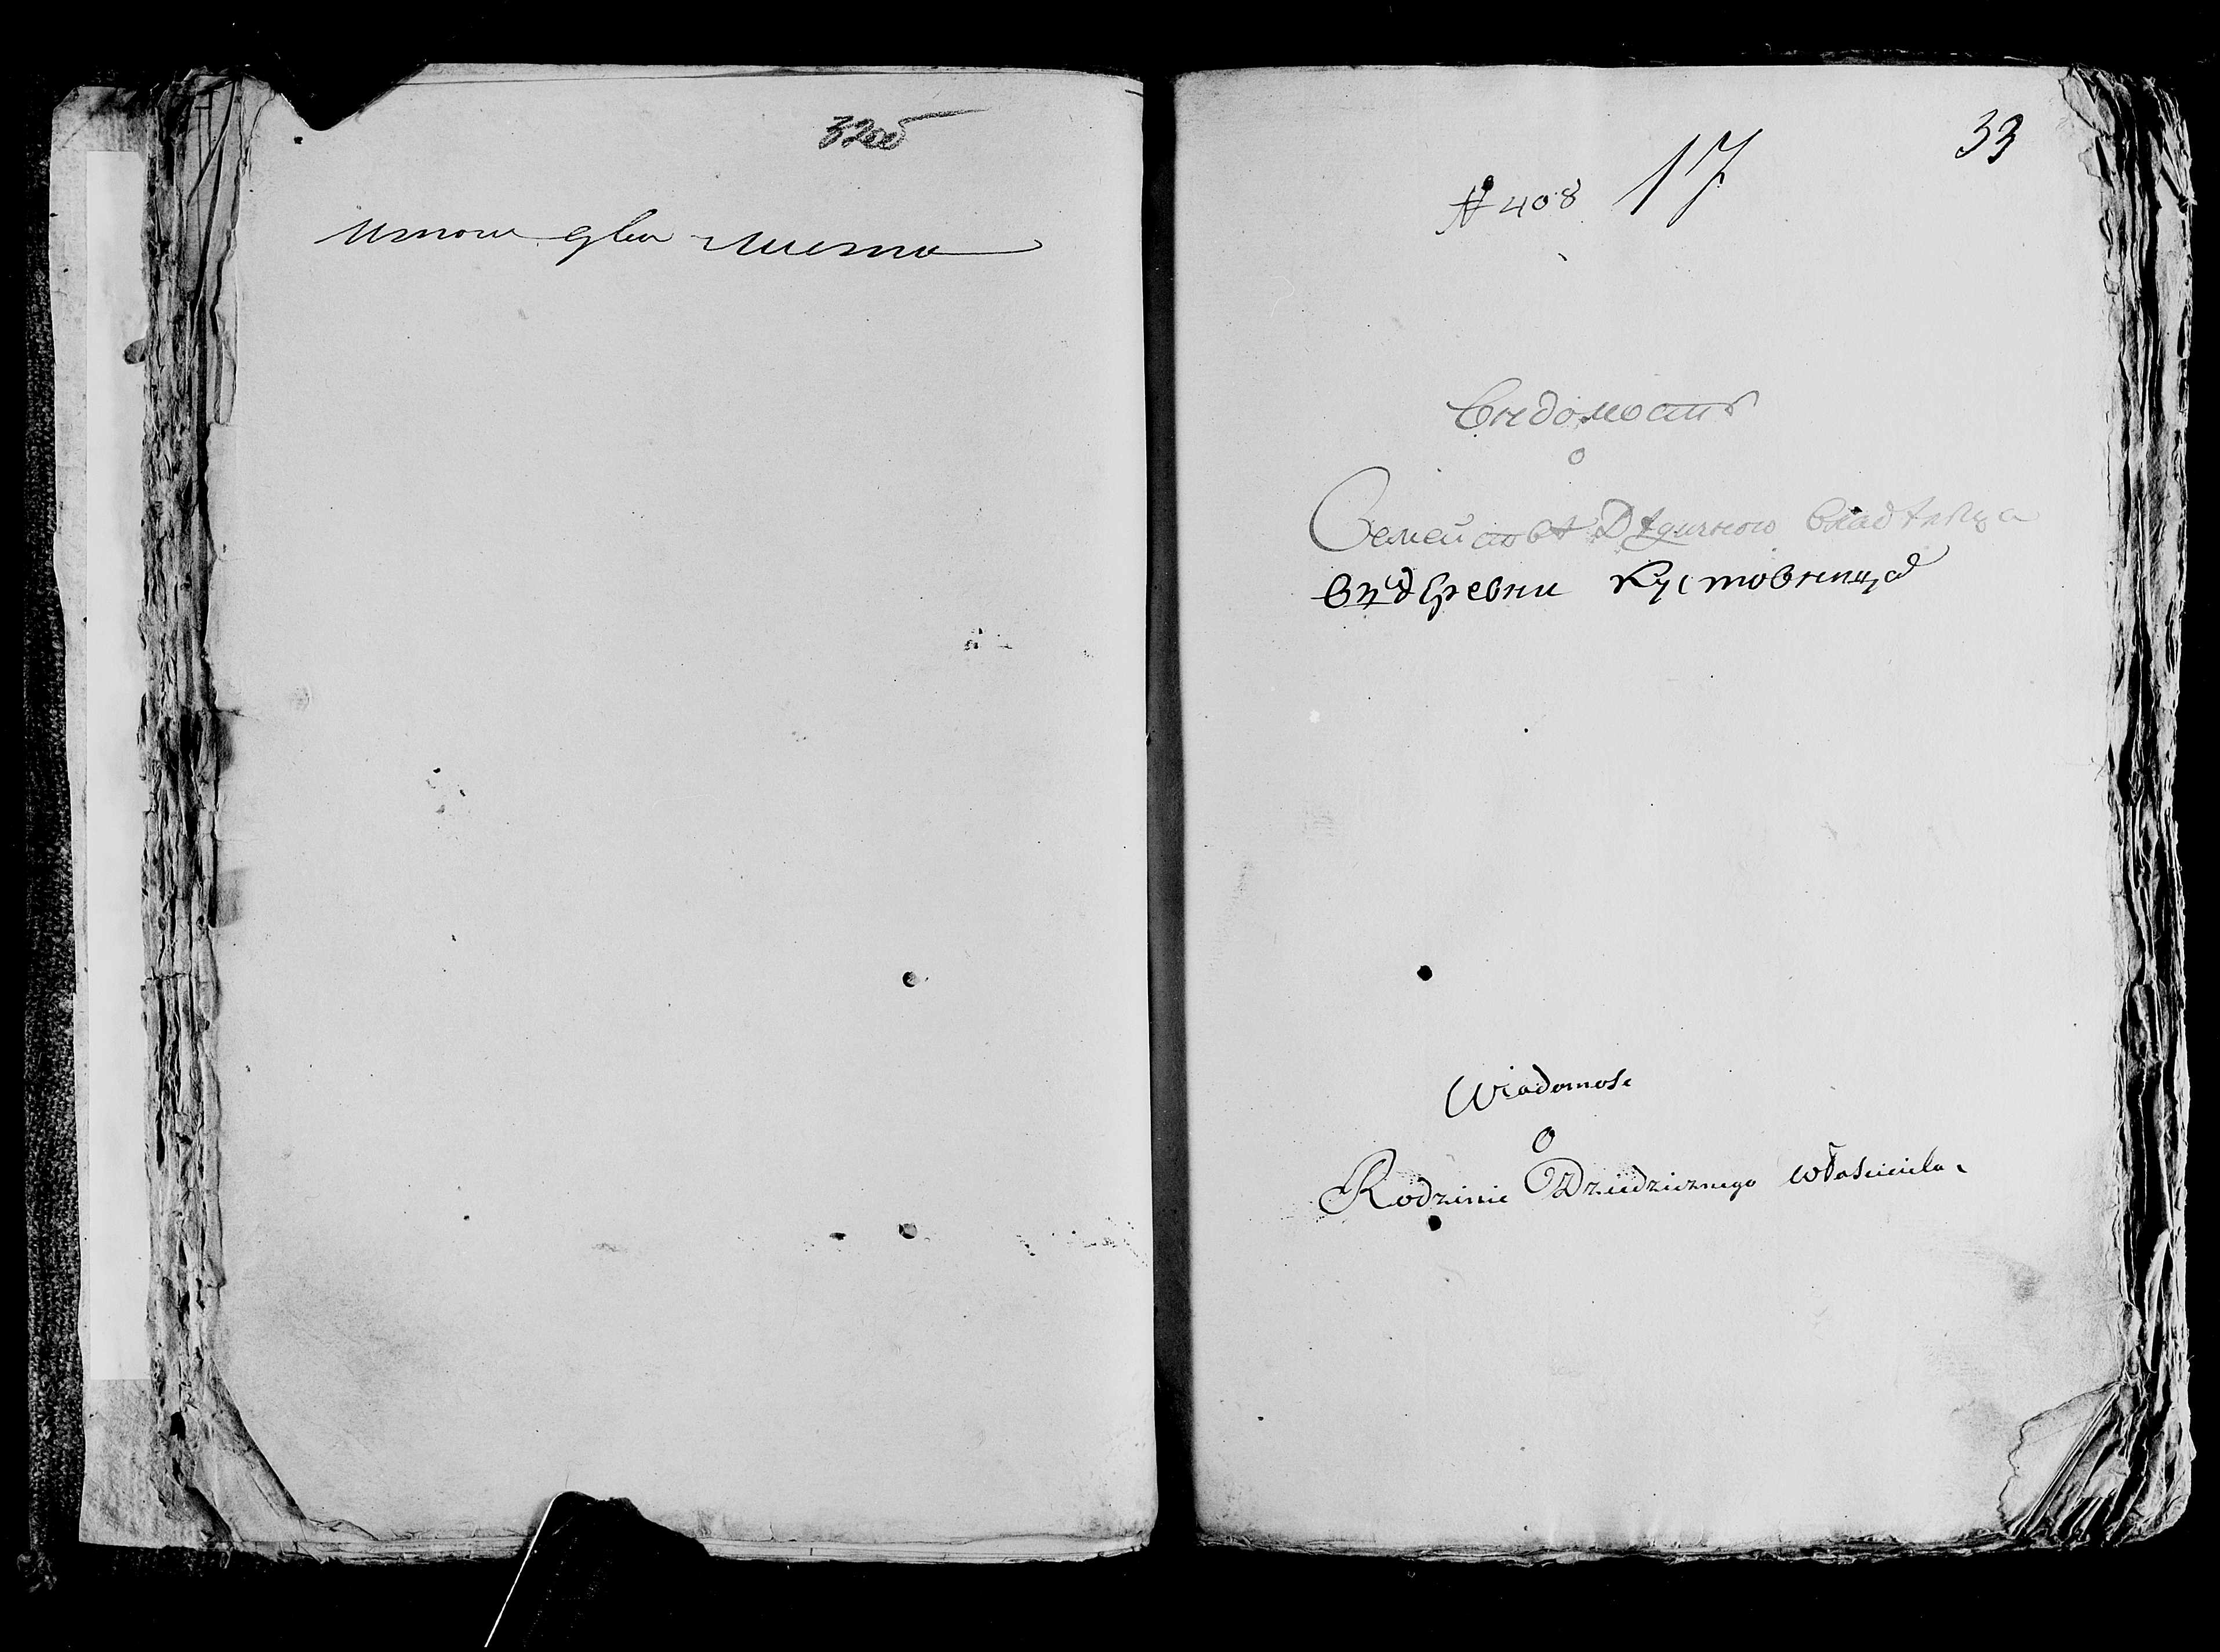 32об
Итого два листа
33
№ 408 17
Ведомость
о
Семействе Дедичного владельца
въ деревни Кустовница
Wiadomosc
o
Rodzinie Dziedzicznego własciciela